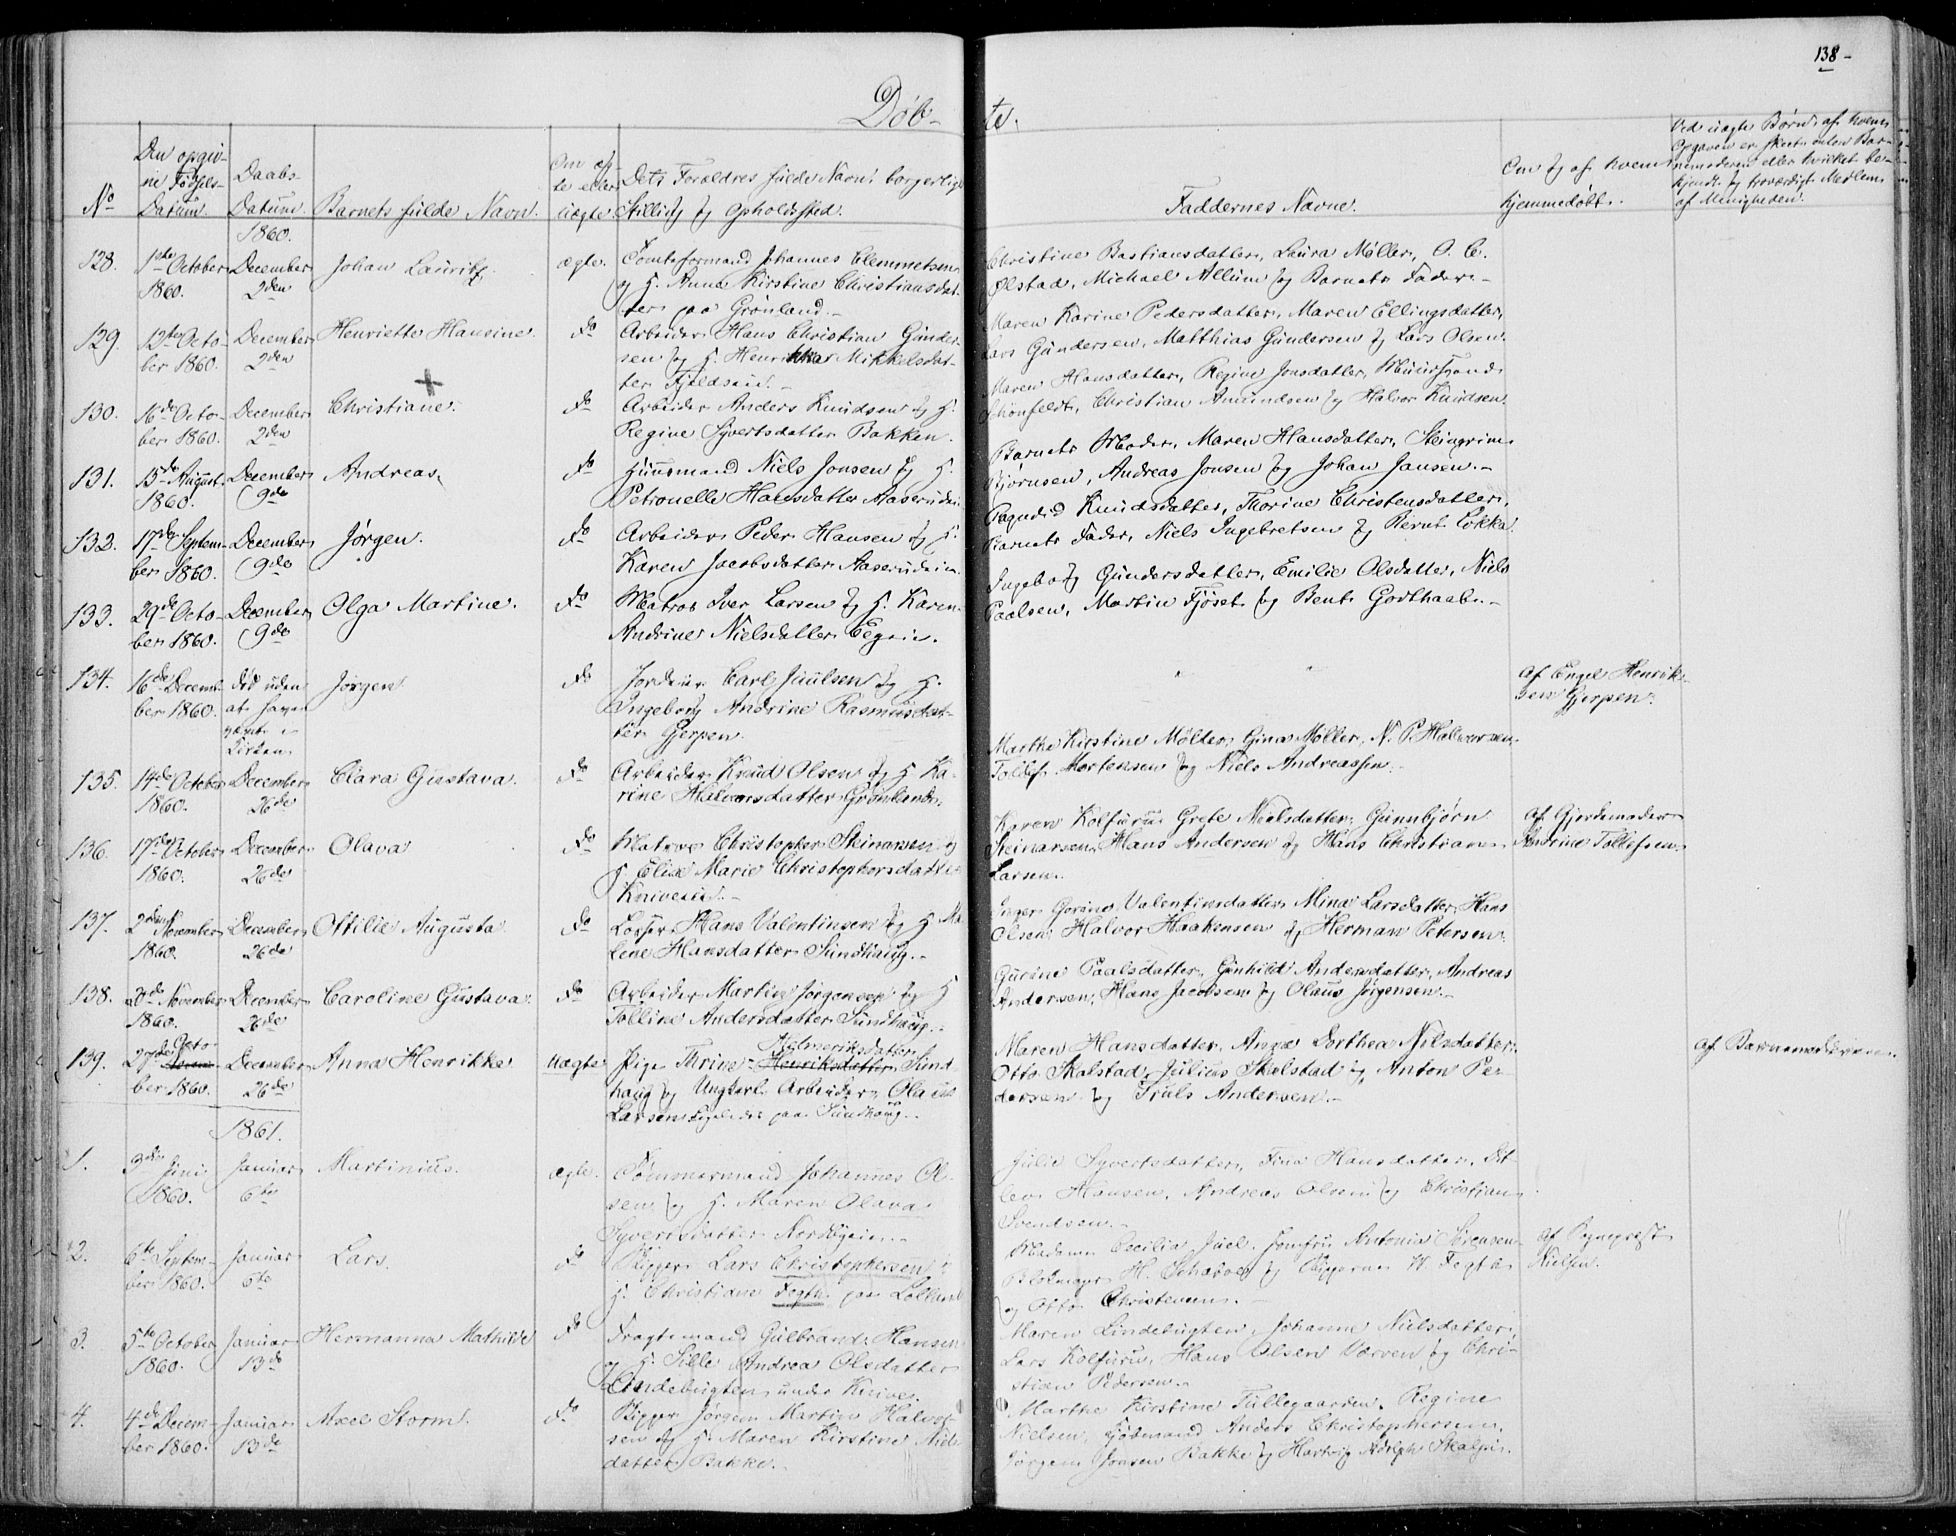 138-
Døb-
te.
No
Den opgiv-
ne Fødsels-
Datum
Daabs
Datum.
1860.
Barnets fulde Navn.
Om æg-
te eller
uægte
Dets Forældres fulde Navn, borgerlige
Stilling og Opholdssted.
Faddernes Navne.
Om og af hvem
hjemmedøbt.
Ved uægte Børn, af hvem
Opgaven er skeet: enten Bar-
nemoderen eller hvilket be-
kjendt og troværdigt Medlem
af Menigheden.
128.
1ste October
1860.
December
2den
Johan Lauritz
ægte.
Tomteformand Johannes Clemmetsen
og H. Anne Kirstine Christiansdat-
ter paa Grønland.-
Christine Bastiansdatter, Laura Møller, O. C.
Ølstad, Michael Allum og Barnets Fader.-
129.
12te Octo-
ber 1860.
December
2den
Henriette Hansine.
do
Arbeider Hans Christian Gunder-
sen og H. Mikkelsdat-
ter
Maren Karine Pedersdatter, Maren Ellingsdatter,
Lars Gundersen, Matthias Gundersen og Lars Olsen.
130.
16de Octo-
ber 1860.
December
2den
Christiane.
do
Arbeider Anders Knudsen og H.
Regine Syvertsdatter Bakken.
Maren Hansdatter, Regine Jonsdatter,
Schønfeldt, Christian Amundsen og Halvor Knudsen.
131.
15de August
1860.
December
9de
Andreas.
do
Huusmand Niels Jonsen og H.
Petronelle Hansdatter
Barnets Moder, Maren Hansdatter, Steingrim
Bjørnsen, Andreas Jonsen og Johan Jansen.-
132.
17de Septem-
ber 1860.
December
9de
Jørgen.
do
Arbeider Peder Hansen og H.
Karen Jacobsdatter
Ragnhild Knudsdatter, Thorine Christensdatter,
Barnets Fader, Niels Ingebretsen og Bernt Løkka.
133.
29de Octo-
ber 1860.
December
9de
Olga Martine.
do
Matros Iver Larsen og H. Karen
Andrine Nielsdatter
Ingeborg Gundersdatter, Emilie Olsdatter, Niels
Paalsen, Martin Fjøset og Bent Godthaab.-
134.
16de Decem-
ber 1860.
død uden
at have
været i
Kirken.
Jørgen
do
Carl Juulsen og H.
Ingeborg Andrine Rasmusdat-
ter Gjerpen.
af Engel Henrik-
sen Gjerpen.
135.
14de October
1860.
December
26de
Clara Gustava.
do
Arbeider Knud Olsen og H. Ka-
rine Halvorsdatter Grønland.
Marthe Kirstine Møller, Gina Møller, N. P. Halvorsen,
Tollef Mortensen og Niels Andreassen.
136.
17de October
1860.
December
26de
Olava
do
Matros Christopher Steinarsen og
H. Elise Marie Christophersdatter
Kniveeie.-
Karen Kolfuru, Grete Nielsdatter, Gunnbjørn
Steinarsen, Hans Andersen og Hans Christian
Larsen.
af Gjordemoder
Andrine Tollefsen.
137.
2den November
1860.
December
26de
Ottilie Augusta
do
Hans Valentinsen og H. Ma-
lene Hansdatter Sundhaug.-
Inger Gorine Valentinsdatter, Mina Larsdatter, Hans
Olsen, Halvor Haakensen og Herman Petersen.
138.
20de November
1860.
December
26de
Caroline Gustava.
do
Arbeider Martin Jørgensen og H.
Tolline Andersdatter Sundhaug.-
Gurine Paalsdatter, Gunhild Andersdatter, Andreas
Andersen, Hans Jacobsen og Olaus Jørgensen.-
139.
27de Octo-
ber 1860.
December
26de
Anna Henrikke
uægte
Pige Thrine Henriksdatter Sund-
haug og Ungkarl Arbeider Olaus
Larsen ligeledes paa Sundhaug.-
Maren Hansdatter, Anne Dorthea Nilsdatter,
Otto Skalstad, Julius Skalstad og Anton Pe-
dersen og Truls Andersen.-
af Barnemoderen.
1861.
1.
3die Juni
1860.
Januar
6te
Martinius.
ægte.
Tømmermand Johannes Ol-
sen og H. Maren Olava
Syvertsdatter
Julie Syvertsdatter, Tina Hansdatter, Dit-
lev Hansen, Andreas Olsen og Christian
Svendsen.-
2.
6te Septem-
ber 1860.
Januar
6te
Lars.
do
Skipper Lars Christophersen og
H. Christiane Fegth paa Lolland
Madam Cecilia Juel, Jomfru Antonia Sørensen
H. og Skipperne W. Fegth
og Otto Christensen.-
af Sognepræst
Nielsen.
3.
5te October
1860.
Januar
13de
Hermanna Mathilde
do
Fragtemand Gulbrand Hansen
og H. Sille Andrea Olsdatter
Lindebugten under Knive.
Maren Lindebugten, Johanne Nielsdatter,
Lars Kolfuru, Hans Olsen Værven og Chri-
stian Pedersen.-
4.
4de Decem-
ber 1860.
Januar
13de
Axel Storm.
do
Skipper Jørgen Martin Halvor-
sen og H. Maren Kirstine Niels-
datter Bakke.-
Marthe Kirstine Tullegaarden, Regine
Nielsen, Kjøbmand Anders Christophersen,
Jørgen Jonsen Bakke og Hartvig Adolph